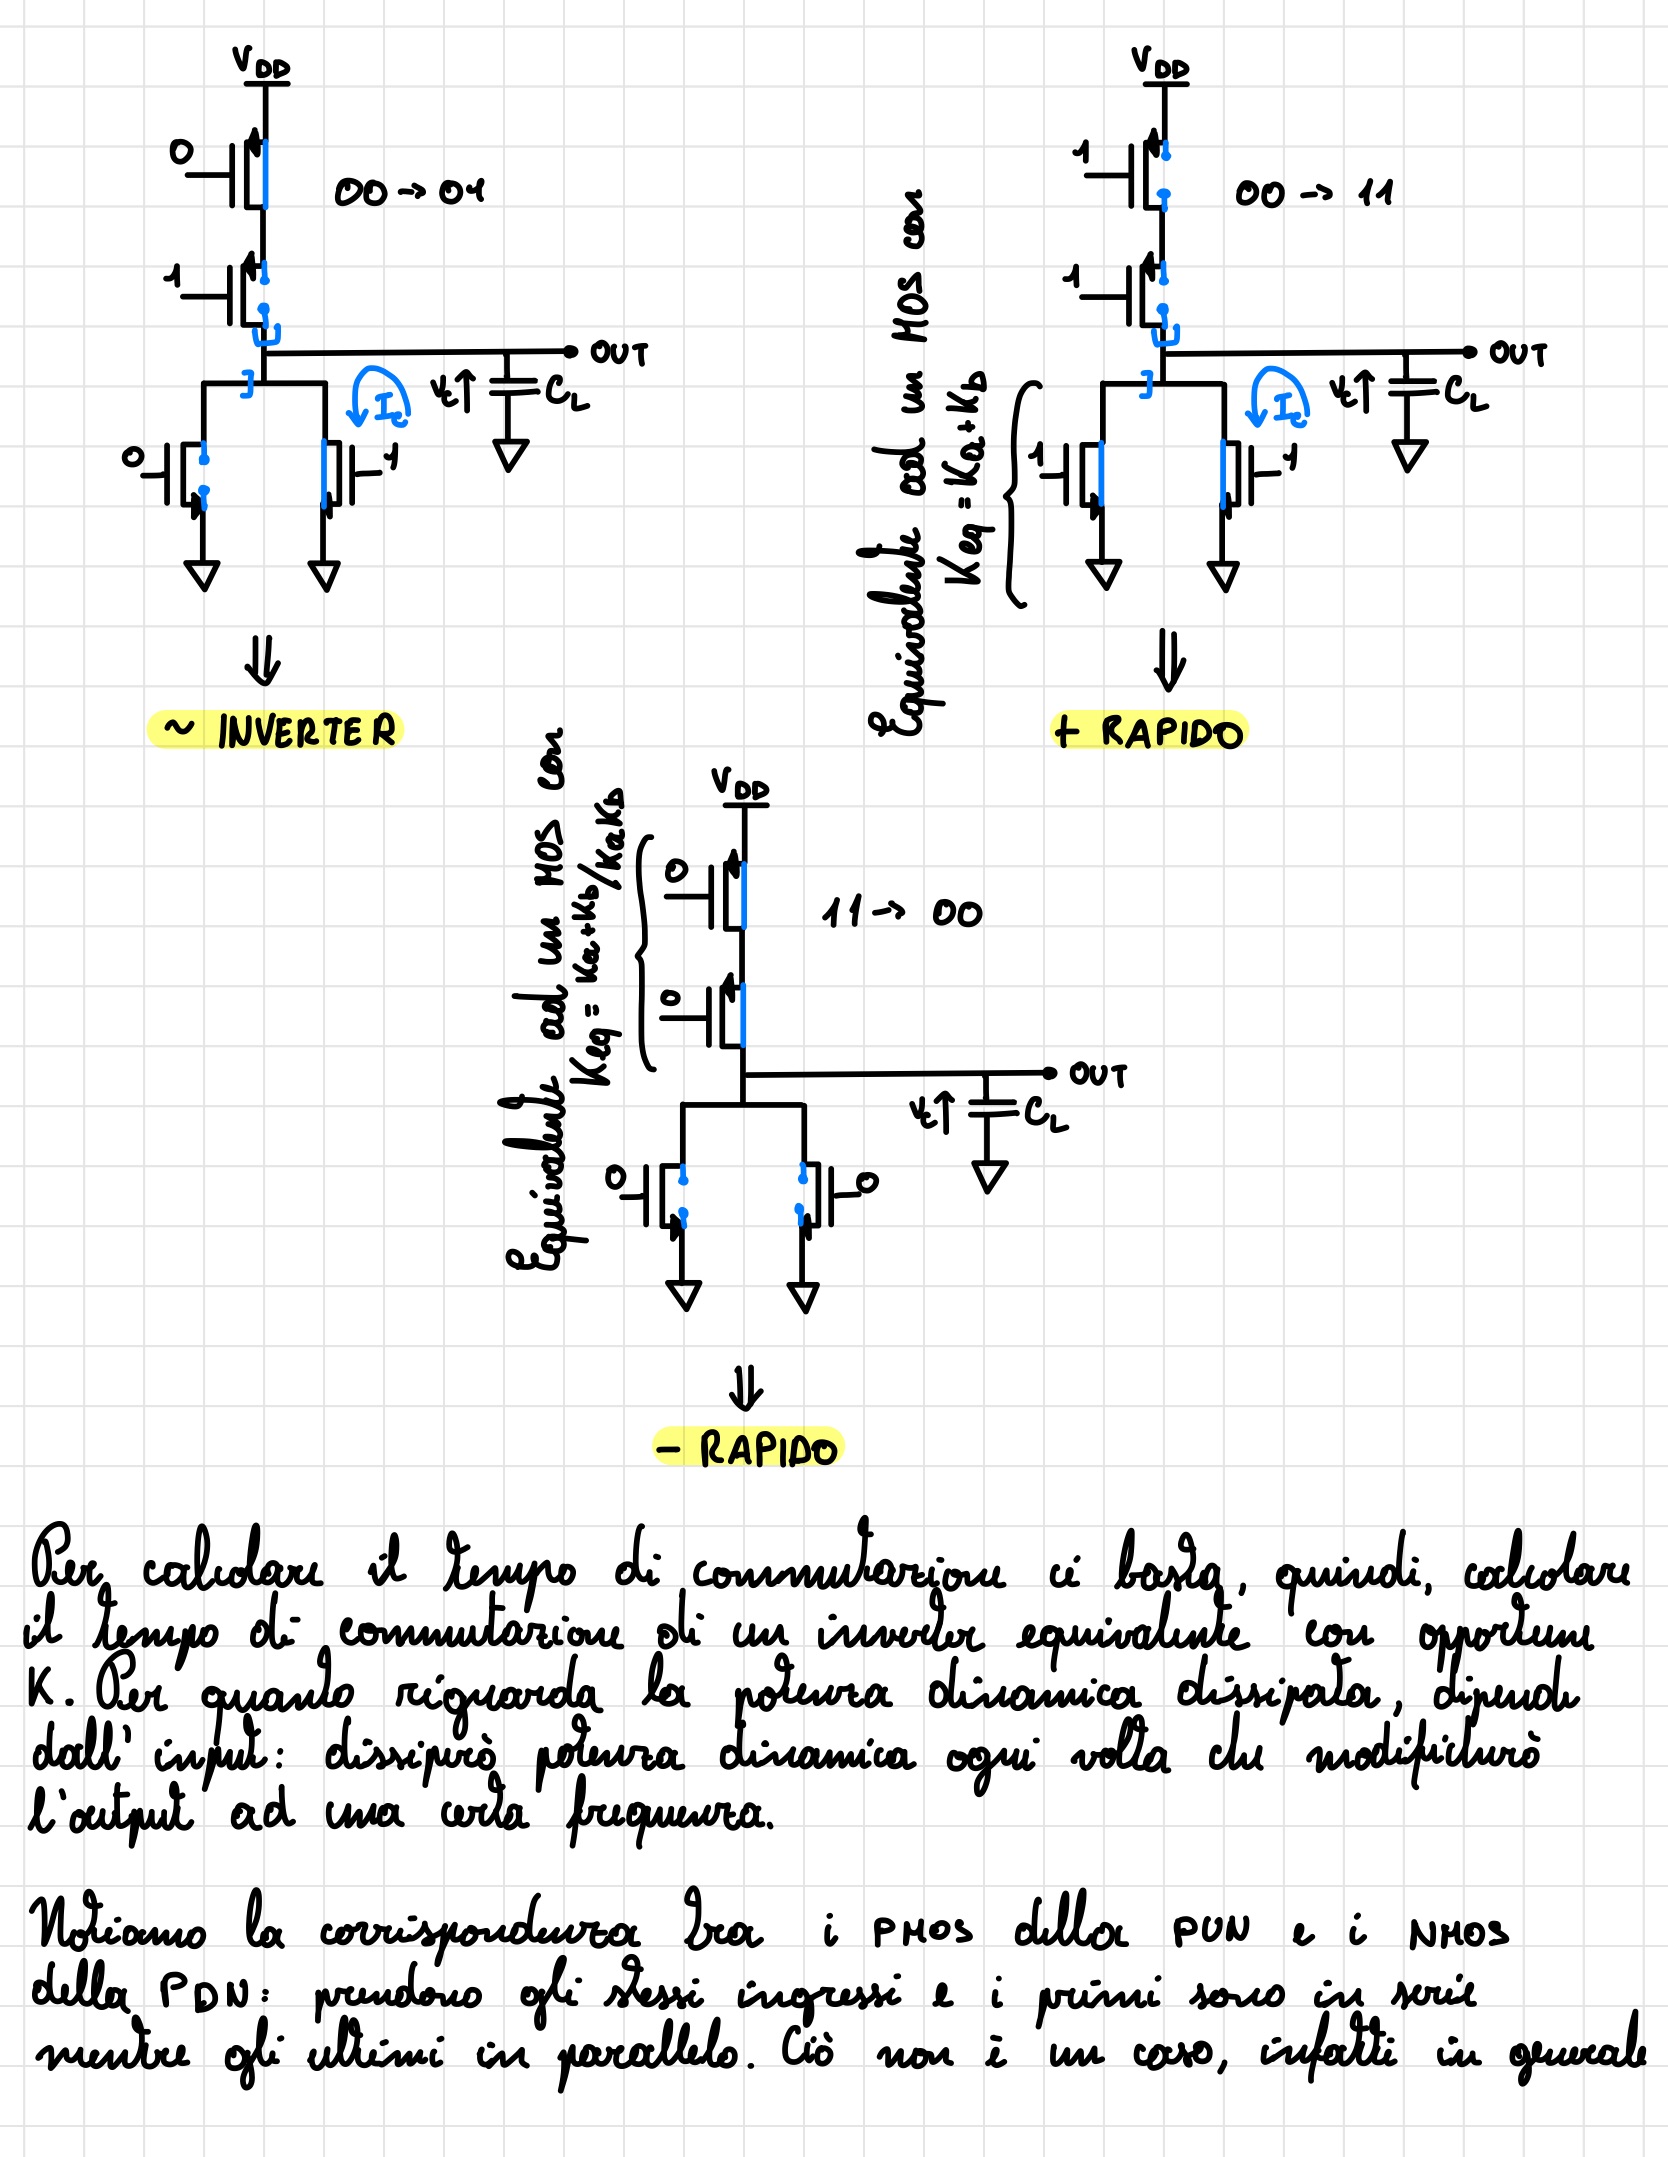 VDD
0
00 → 01
1
OUT
Vc
CL
Ic
0
1
~ INVERTER
VDD
1
00 → 11
1
OUT
Vc
CL
Ic
1
1
Equivalente ad un MOS con
Keq = Ka+Kb
+ RAPIDO
VDD
0
11 → 00
0
OUT
Vc
CL
0
0
Equivalente ad un MOS con
Keq = Ka+Kb/KaKb
- RAPIDO
Per calcolare il tempo di commutazione ci basta, quindi, calcolare
il tempo di commutazione di un inverter equivalente con opportune
K. Per quanto riguarda la potenza dinamica dissipata, dipende
dall' input: dissiperò potenza dinamica ogni volta che modificherò
l'output ad una certa frequenza.
Notiamo la corrispondenza tra i PMOS della PUN e i NMOS
della PDN: prendono gli stessi ingressi e i primi sono in serie
mentre gli ultimi in parallelo. Ciò non è un caso, infatti in generale